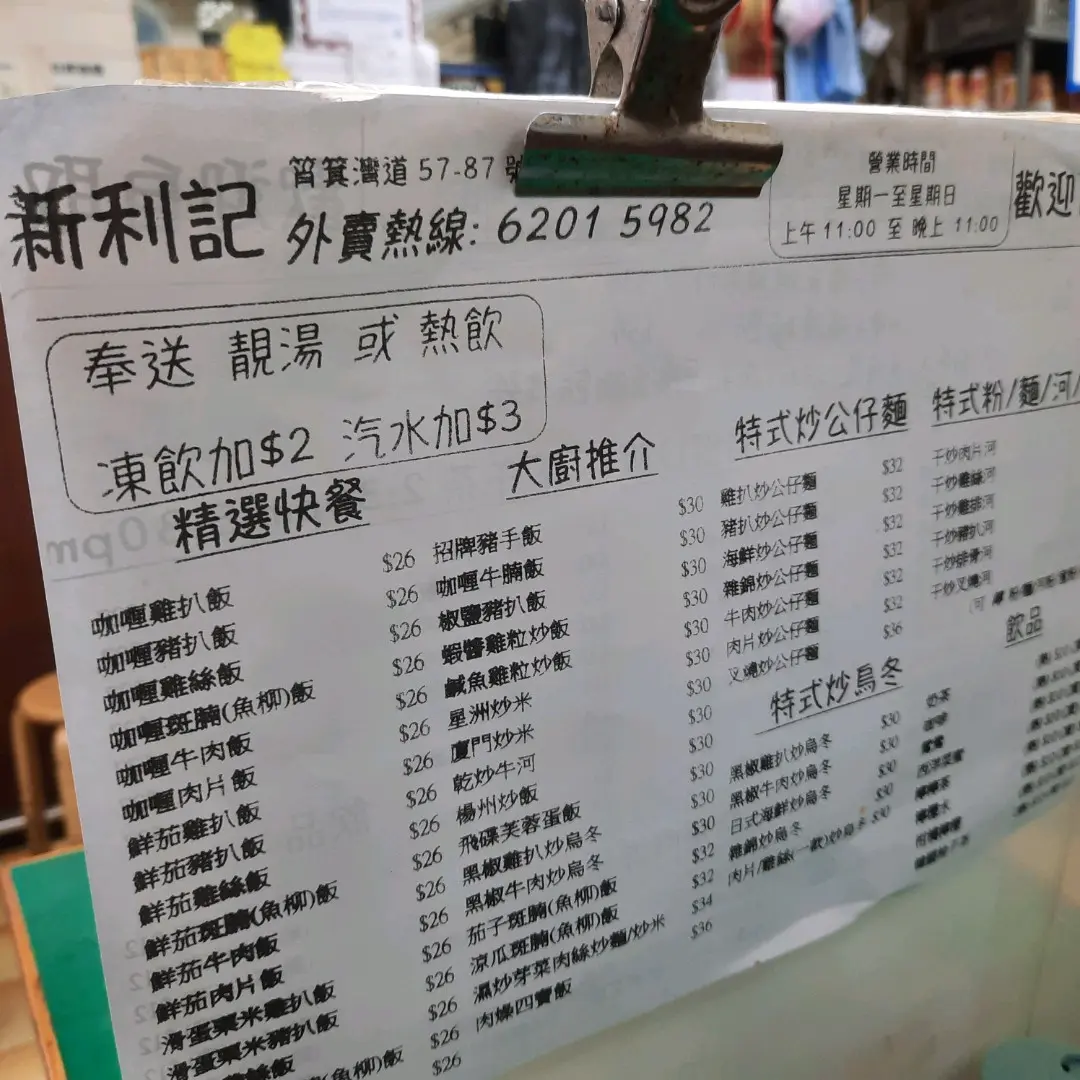 新利記
筲箕灣道 57-87 號
外賣熱線: 6201 5982
營業時間
星期一至星期日
上午 11:00 至 晚上 11:00
歡迎
奉送 靚湯 或 熱飲
凍飲加$2 汽水加$3
精選快餐
咖喱雞扒飯 $26
咖喱豬扒飯 $26
咖喱雞絲飯 $26
咖喱斑腩(魚柳)飯 $26
咖喱牛肉飯 $26
咖喱肉片飯 $26
鮮茄雞扒飯 $26
鮮茄豬扒飯 $26
鮮茄雞絲飯 $26
鮮茄斑腩(魚柳)飯 $26
鮮茄牛肉飯 $26
鮮茄肉片飯 $26
滑蛋粟米雞扒飯 $26
滑蛋粟米豬扒飯 $26
雞絲飯 $26
(魚柳)飯 $26
$26
大廚推介
招牌豬手飯 $30
咖喱牛腩飯 $30
椒鹽豬扒飯 $30
蝦醬雞粒炒飯 $30
鹹魚雞粒炒飯 $30
星洲炒米 $30
廈門炒米 $30
乾炒牛河 $30
楊州炒飯 $30
飛碟芙蓉蛋飯 $30
黑椒雞扒炒烏冬 $30
黑椒牛肉炒烏冬 $30
茄子斑腩(魚柳)飯 $32
涼瓜斑腩(魚柳)飯 $32
濕炒芽菜肉絲炒麵/炒米 $34
肉燥四寶飯 $36
特式炒公仔麵
雞扒炒公仔麵 $32
豬扒炒公仔麵 $32
海鮮炒公仔麵 $32
雜錦炒公仔麵 $32
牛肉炒公仔麵 $32
肉片炒公仔麵 $32
叉燒炒公仔麵 $36
特式炒烏冬
黑椒雞扒炒烏冬 $30
黑椒牛肉炒烏冬 $30
日式海鮮炒烏冬 $30
雜錦炒烏冬 $30
肉片/雞絲(一款)炒烏冬 $30
特式粉/麵/河/
干炒肉片河
干炒雞絲河
干炒雞排河
干炒豬扒河
干炒排骨河
干炒叉燒河
飲品
奶茶
咖啡